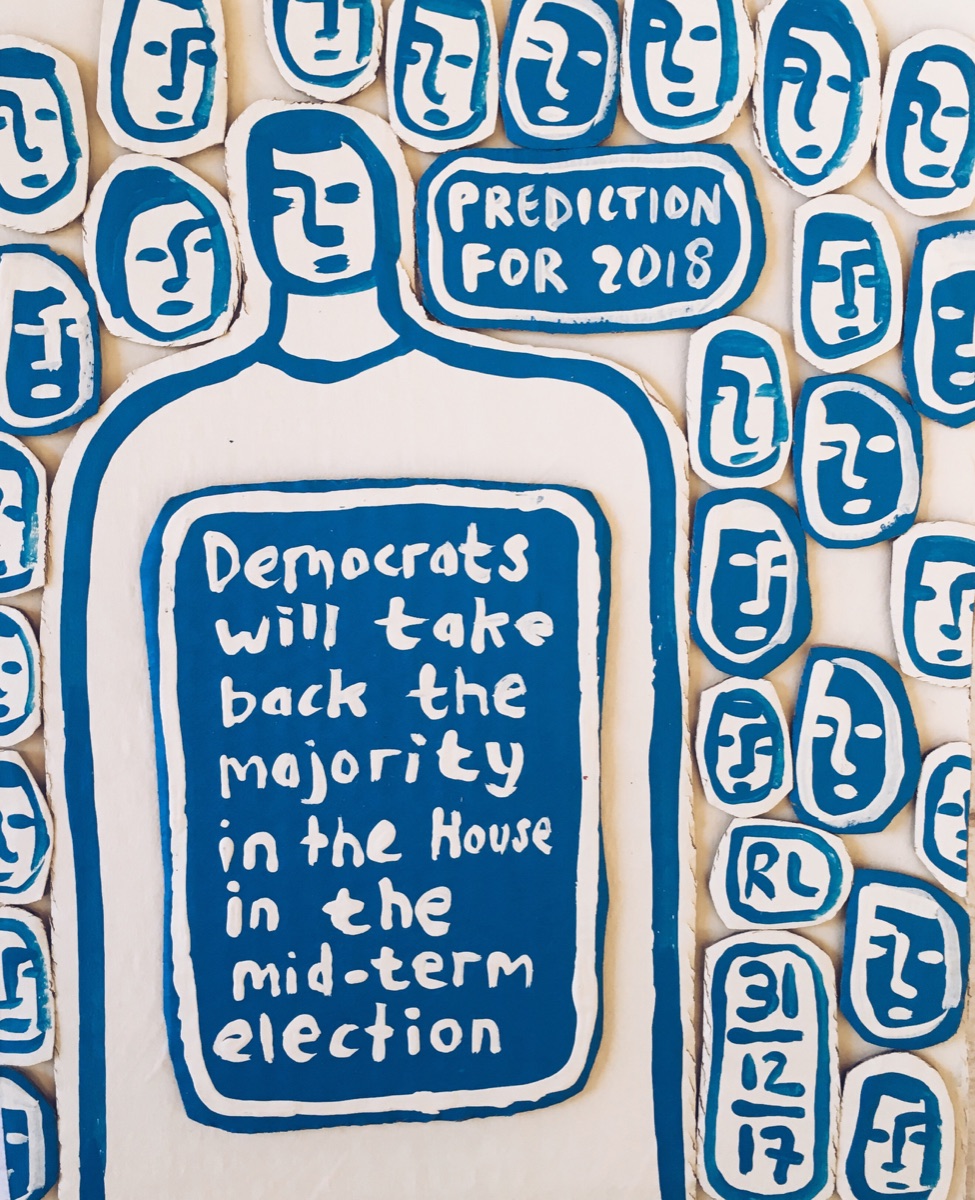 PREDICTION
FOR 2018
Democrats
will take
back the
majority
in the House
in the
mid-term
election
RL
31
12
17